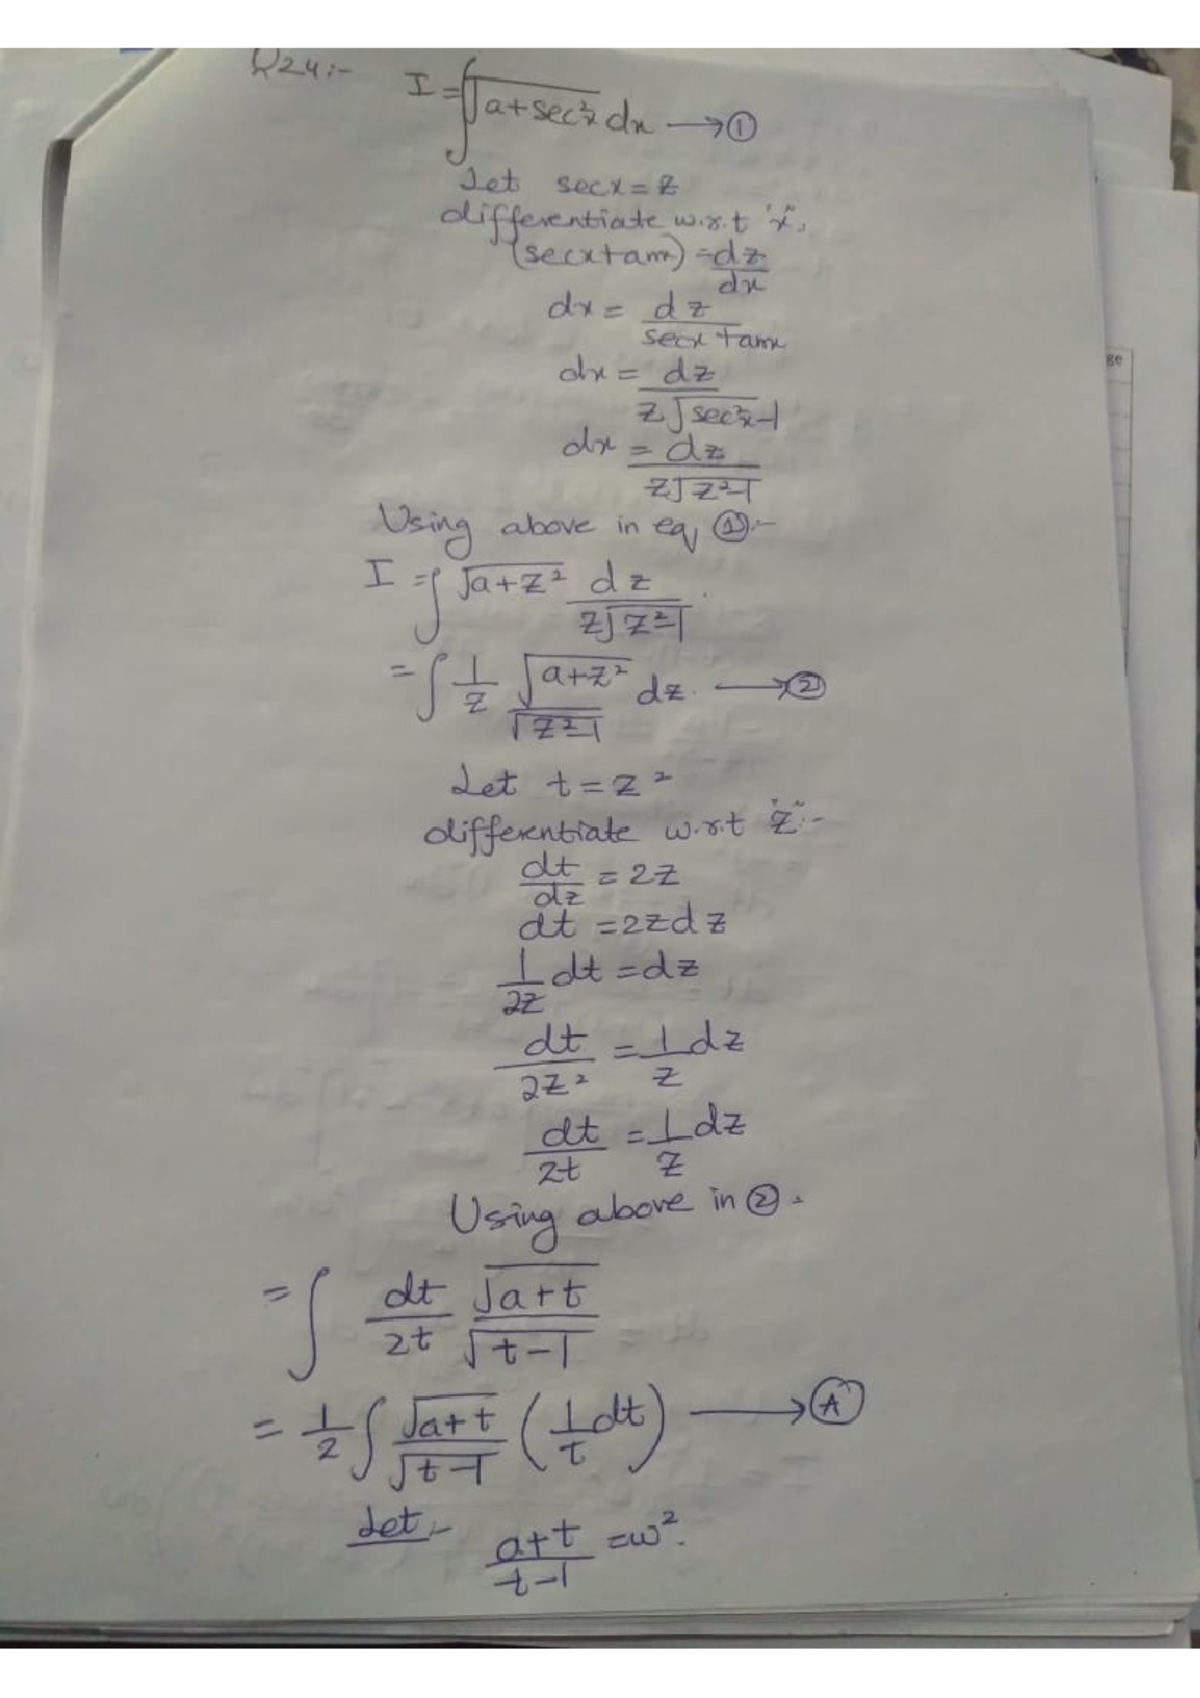 Q24:- I = ∫√(a+sec²x) dx → ①
Let secx = z
differentiate w.r.t "x",
(secx tanx) = dz/dx
dx = dz/(secx tanx)
dx = dz/(z√(sec²x-1))
dx = dz/(z√(z²-1))
Using above in eq ①:-
I = ∫ √(a+z²) dz/(z√(z²-1))
= ∫ 1/z √(a+z²)/√(z²-1) dz. → ②
Let t = z²
differentiate w.r.t "z":-
dt/dz = 2z
dt = 2zdz
1/2z dt = dz
dt/2z² = 1/z dz
dt/2t = 1/z dz
Using above in ②.
= ∫ dt/2t √(a+t)/√(t-1)
= 1/2 ∫ √(a+t)/√(t-1) (1/t dt) → Ⓐ
Let:- (a+t)/(t-1) = w².